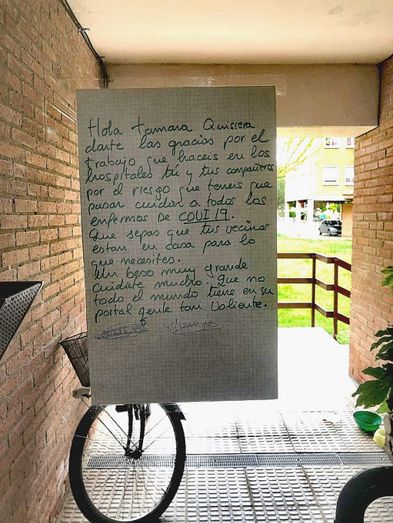 Hola tamara Quisiera
darte las gracias por el
trabajo que haceis en los
hospitales tú y tus compañeros
por el riesgo que teneis que
pasar cuidar a todos los
enfermos de COVI 19.
Que sepas que tus vecinos
estan en casa para lo
que necesites.
Un beso muy grande
cuidate mucho. Que no
todo el mundo tiene en su
portal gente tan valiente.